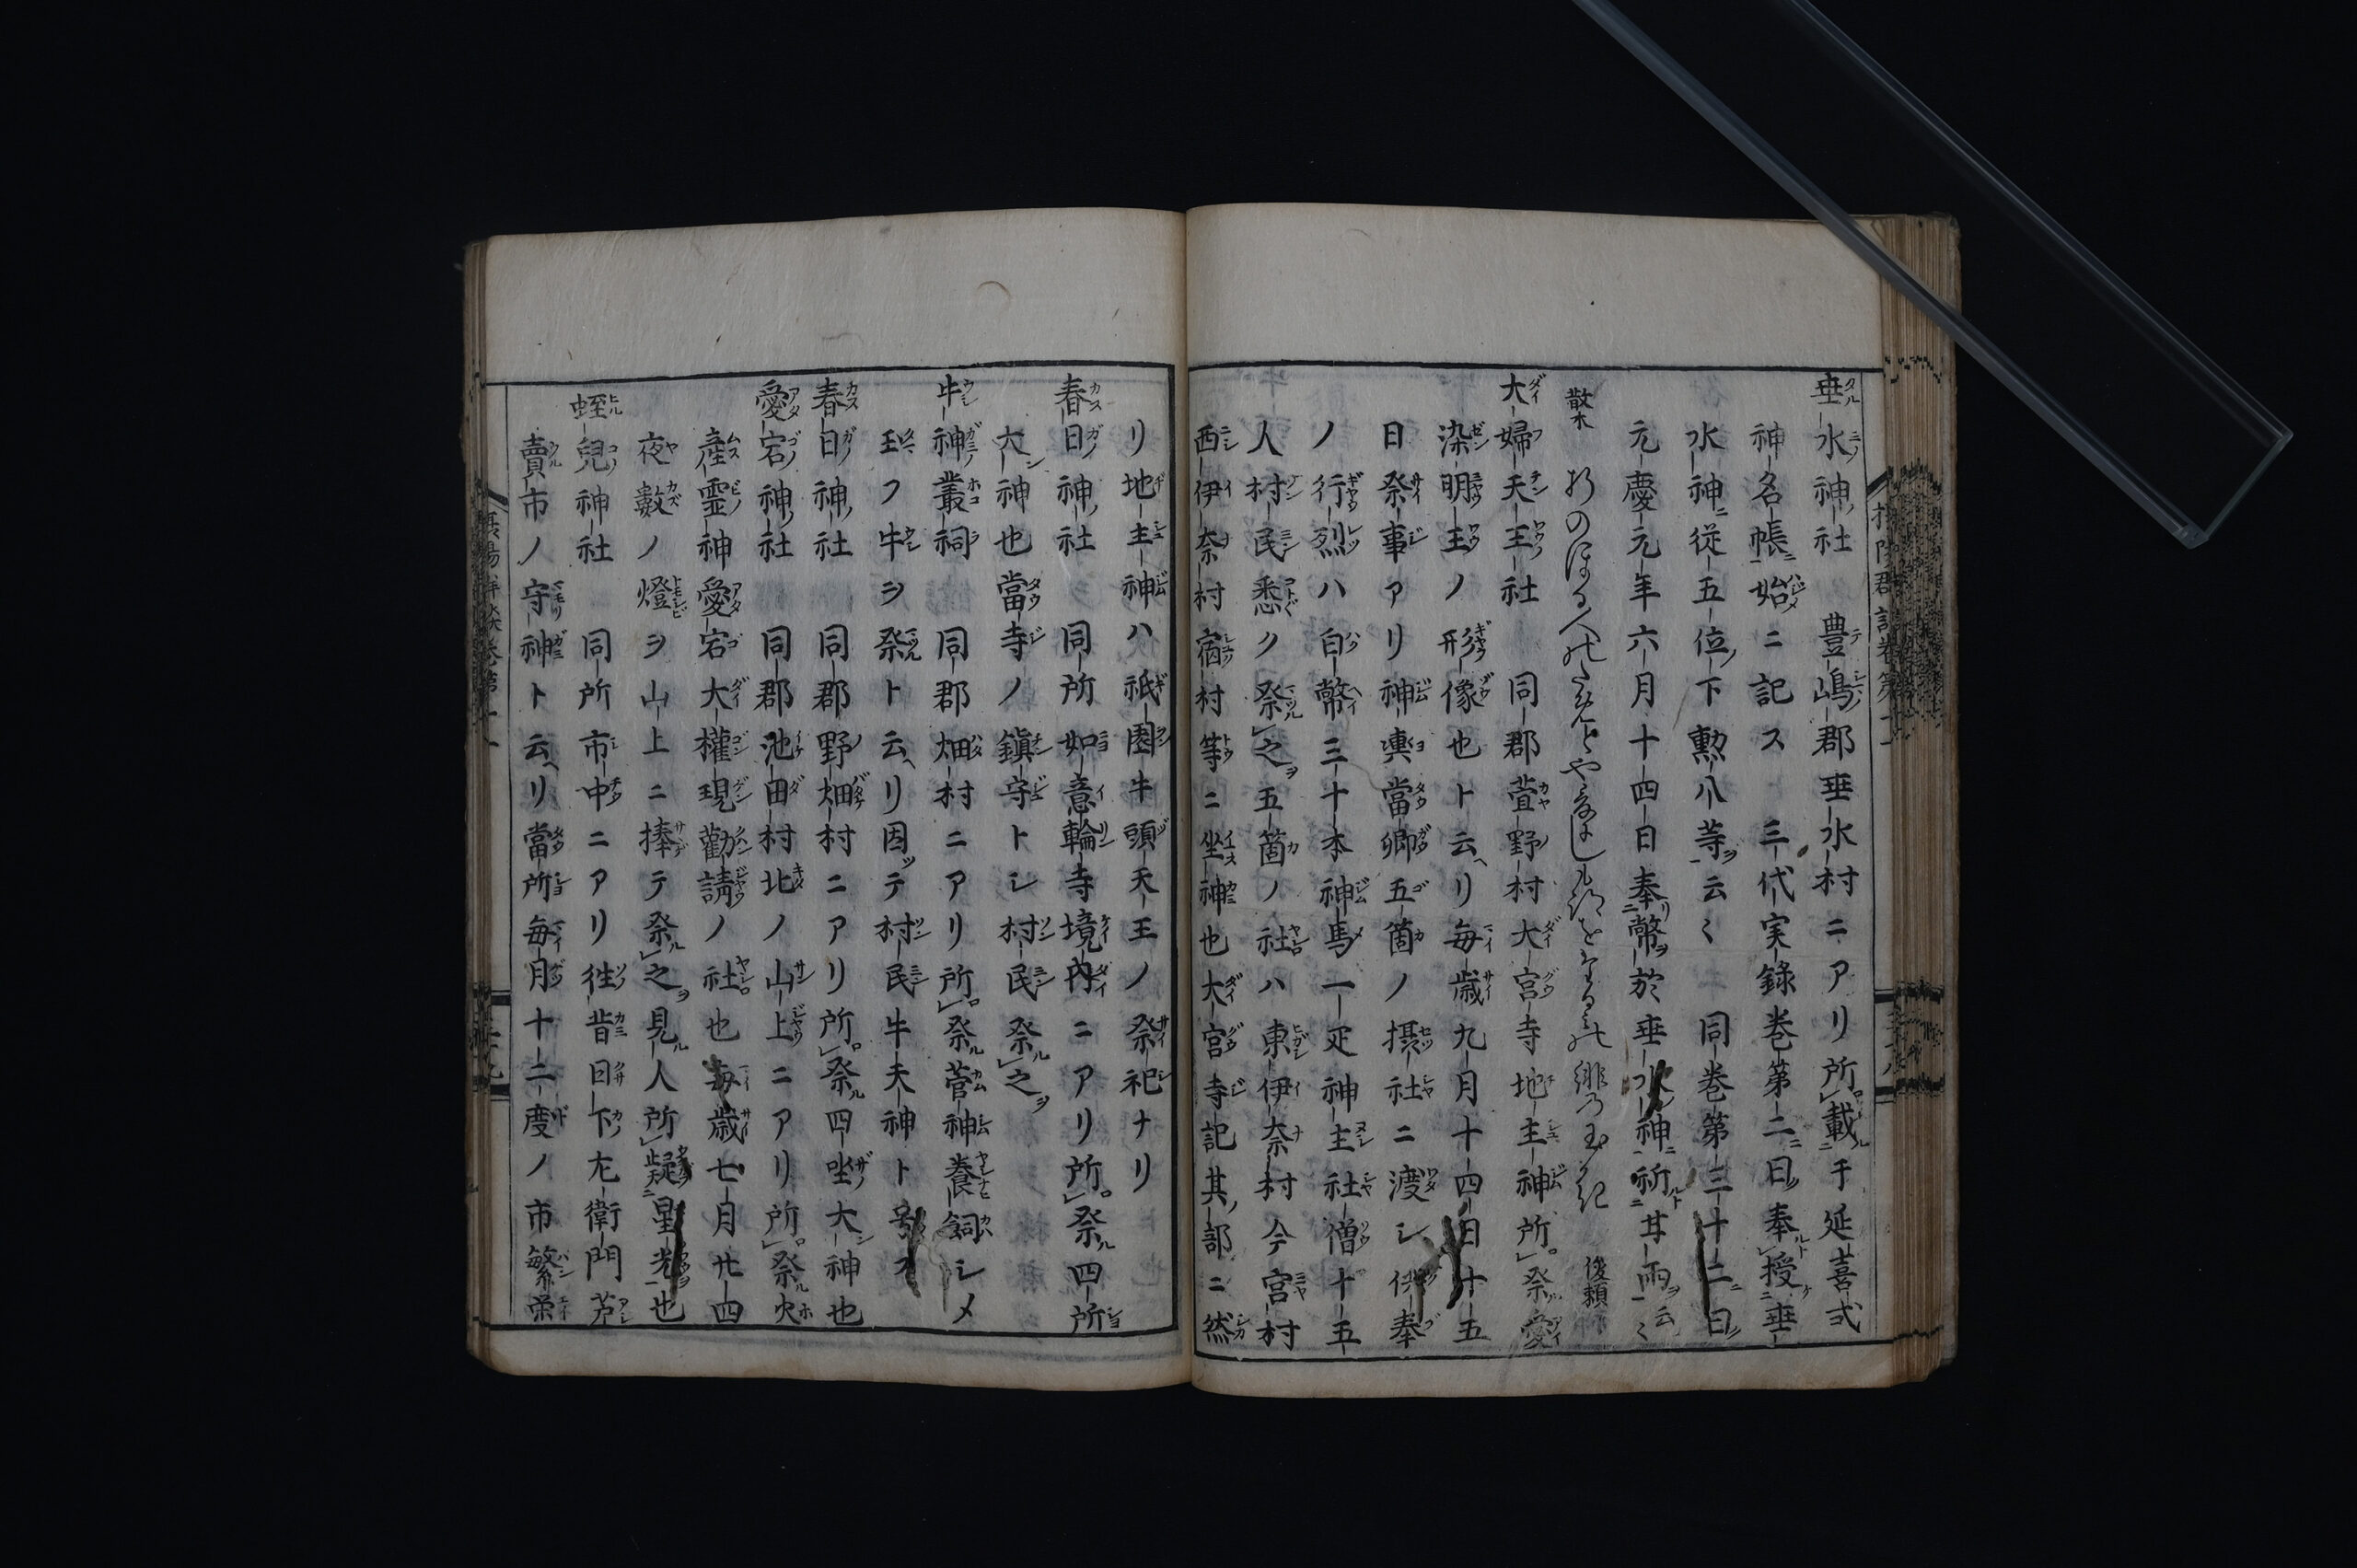 垂水神社 豊嶋郡垂水村ニアリ所載于延喜式
神名帳始ニ記ス 三代実録巻第二曰奉授垂
水神従五位下勲八等云〻 同巻第三十二曰
元慶元年六月十四日奉幣於垂水神祈甘雨云〻
散木 俊頼
大婦天王社 同郡萓野村大宮寺地主神所祭愛
染明王ノ形像也ト云ヘリ毎歳九月十四日十五
日祭事アリ神輿當郷五箇ノ摂社ニ渡シ供奉
ノ行烈ハ白幣三十本神馬一疋神主社僧十五
人村民悉ク祭之五箇ノ社ハ東伊奈村今宮村
西伊奈村宿村等ニ坐神也大宮寺記其部ニ然
リ地主神ハ祇園牛頭天王ノ祭祀ナリ
春日神社 同所如意輪寺境内ニアリ所祭四所
大神也當寺ノ鎮守トシ村民祭之
牛神叢祠 同郡畑村ニアリ所祭菅神養飼シメ
玉フ牛ヲ祭ト云ヘリ因テ村民牛天神ト号ス
春日神社 同郡野畑村ニアリ所祭四坐大神也
愛宕神社 同郡池田村北ノ山上ニアリ所祭火
産霊神愛宕大權現勸請ノ社也毎歳七月廿四
夜數ノ燈ヲ山上ニ捧テ祭之見人所疑星光也
蛭兒神社 同所市中ニアリ往昔日下左衛門芦
賣市ノ守神ト云ヘリ當所毎月十二度ノ市繁栄